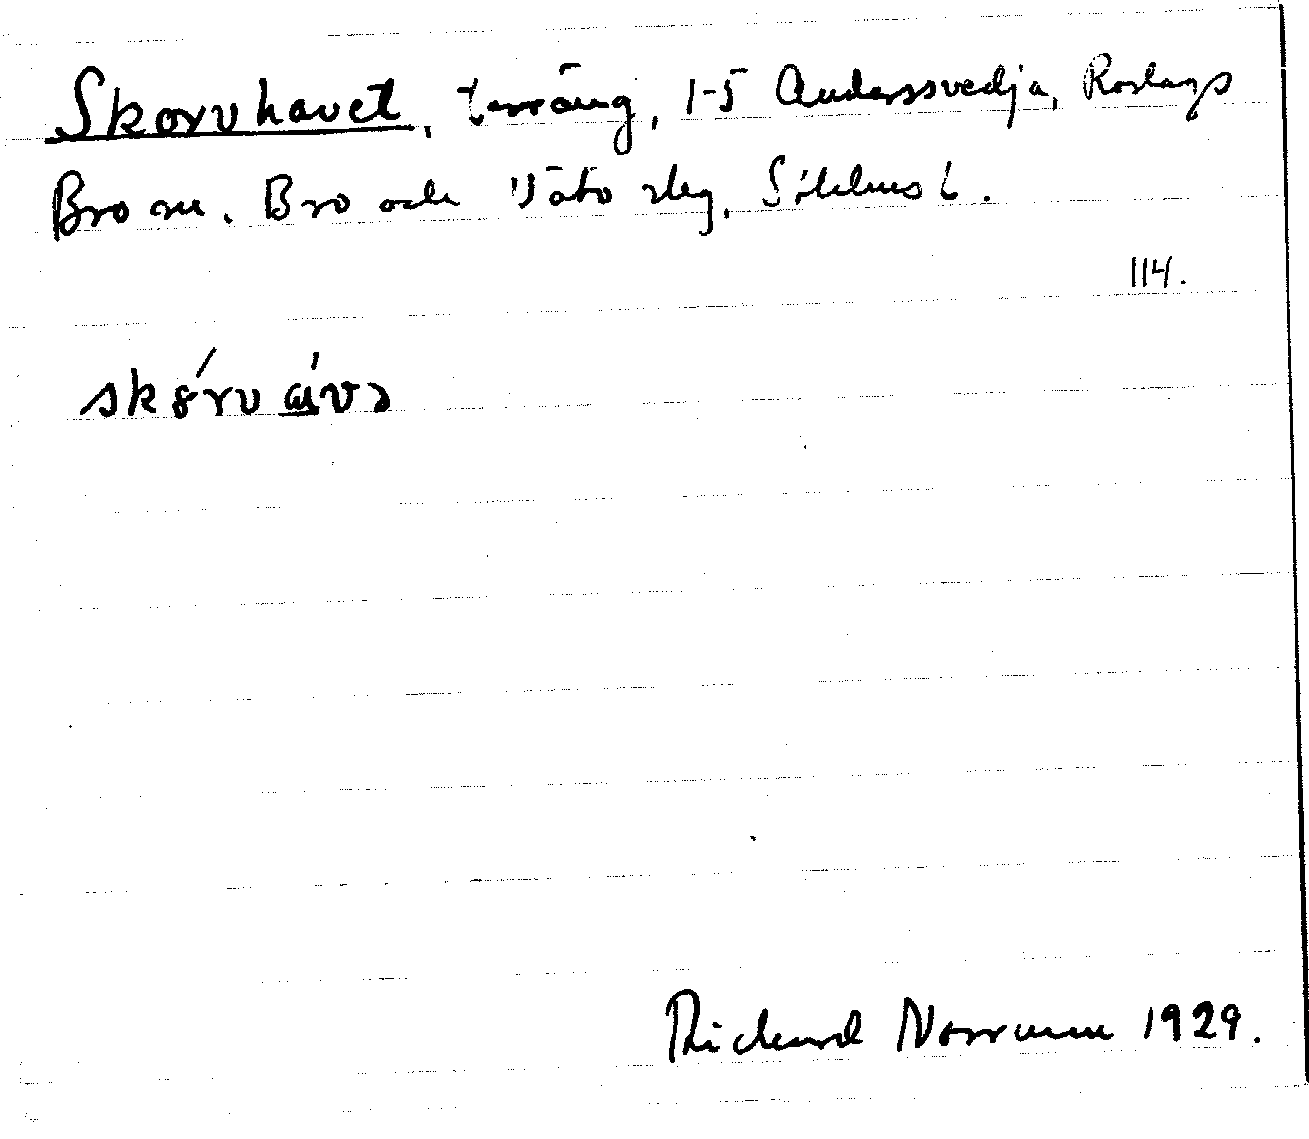 Skorvhavet, terräng, 1-5 Anderssvedja, Roslags
Bro sn. Bro och Vätö skg, Sthlms l.
114.
Richard Norrman 1929.